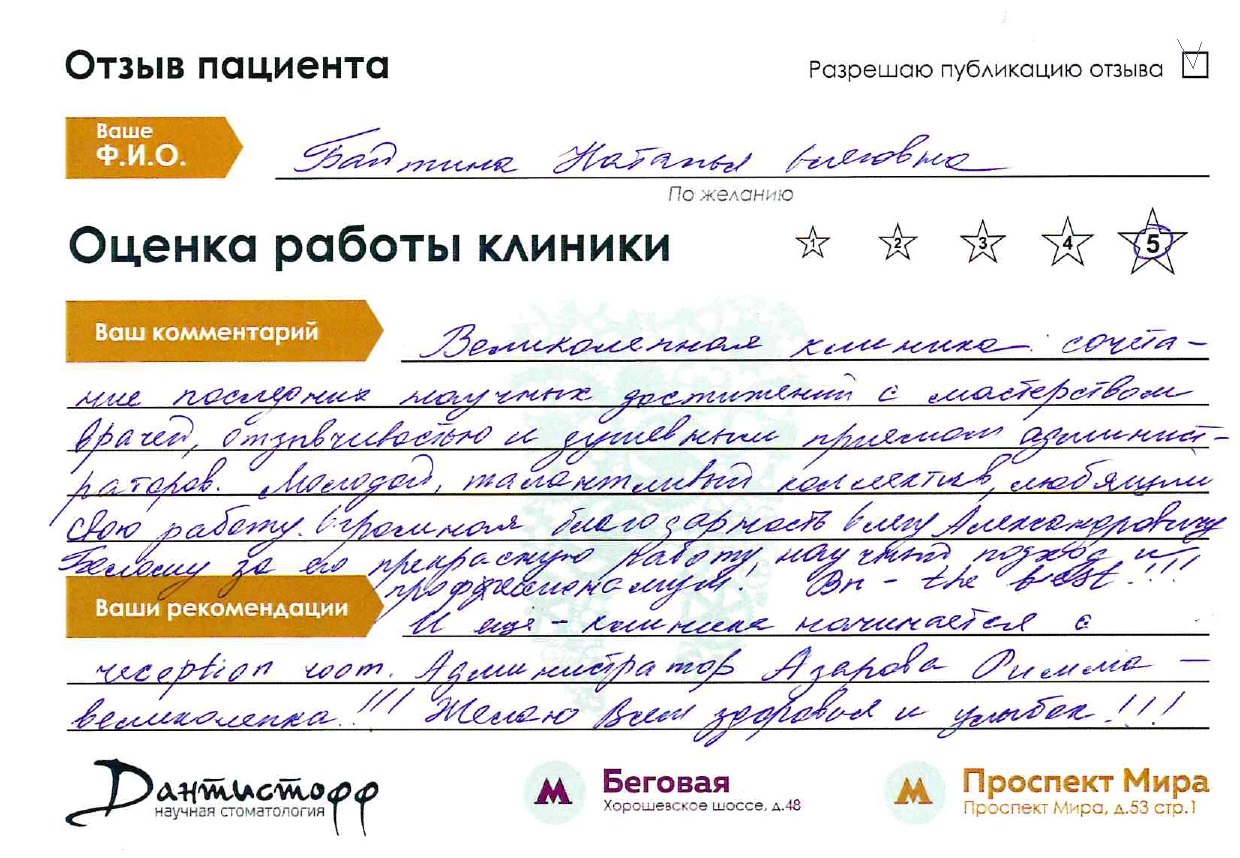 Отзыв пациента
Разрешаю публикацию отзыва
Ваше
Ф.И.О.
Наталья Олеговна
По желанию
Оценка работы клиники
1 2 3 4 5
Ваш комментарий
Великолепная клиника: сочета-
ние последних научных достижений с мастерством
врачей, отзывчивостью и душевным приемом админист-
раторов. Молодой, талантливый коллектив, любящий
свою работу. Огромная благодарность Олегу Александровичу
Белому за его прекрасную работу, научный подход и
профессионализм! Вы - the best!!!
Ваши рекомендации
И еще - клиника начинается с
reception room. Администратор Азарова Римма -
великолепна!!! Желаю Всем здоровья и улыбок!!!
Дантистофф
научная стоматология
М Беговая
Хорошевское шоссе, д.48
М Проспект Мира
Проспект Мира, д.53 стр.1